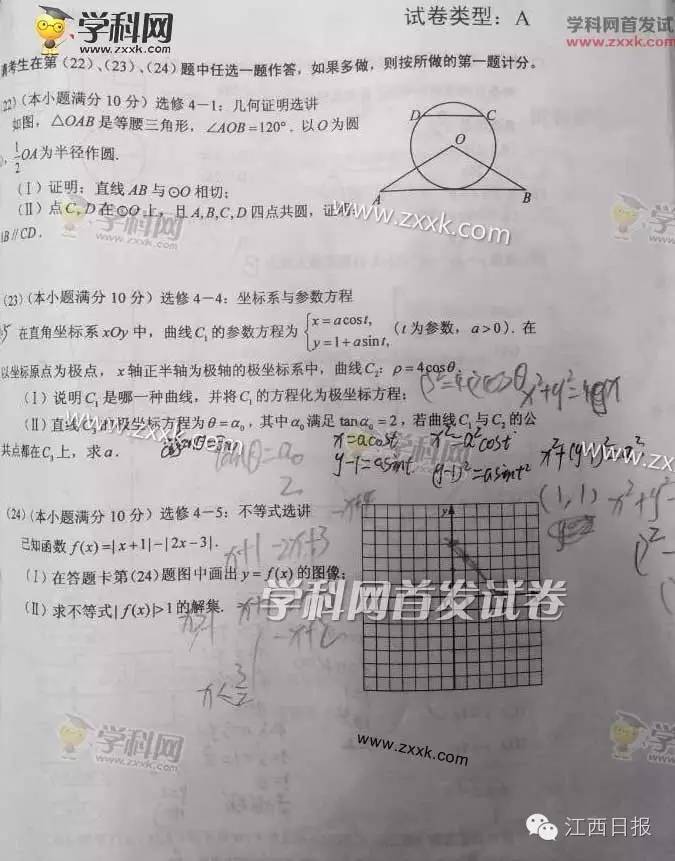 学科网
www.zxxk.com
试卷类型：A
学科网首发试
www.zxxk.com
请考生在第（22）、（23）、（24）题中任选一题作答，如果多做，则按所做的第一题计分。
22）（本小题满分 10 分）选修 4－1：几何证明选讲
如图，△OAB 是等腰三角形，∠AOB=120°．以O为圆
，1/2 OA为半径作圆．
（Ⅰ）证明：直线 AB 与⊙O 相切；
（Ⅱ）点 C，D 在⊙O 上，且 A,B,C,D 四点共圆，证明：
AB∥CD．
D C
O
A B
学科网
www.zxxk.com
(23)（本小题满分 10 分）选修 4－4：坐标系与参数方程
在直角坐标系 xOy 中，曲线C₁的参数方程为 {x=acost, y=1+asint,（t 为参数，a>0）．在
以坐标原点为极点，x 轴正半轴为极轴的极坐标系中，曲线C₂：ρ=4cosθ．
（Ⅰ）说明 C₁ 是哪一种曲线，并将 C₁ 的方程化为极坐标方程；
x²+y²=4x
（Ⅱ）直线 C₃ 的极坐标方程为θ=α₀，其中α₀满足 tanα₀=2，若曲线C₁与C₂的公
共点都在C₃上，求a．
www.zxxk.com
tanθ=a₀
2
x=acost
y-1=asint
x²=a²cost²
(y-1)²=asint²
x²+(y-1)²=a²
(1,1)
x²+y²-
(24)（本小题满分 10 分）选修 4－5：不等式选讲
已知函数 f(x)=|x+1|−|2x−3|．
x+1-2x+3
（Ⅰ）在答题卡第（24）题图中画出 y=f(x) 的图像；
（Ⅱ）求不等式|f(x)|>1的解集．
-x+4
x<3/2
y
学科网首发试卷
www.zxxk.com
学科网
江西日报